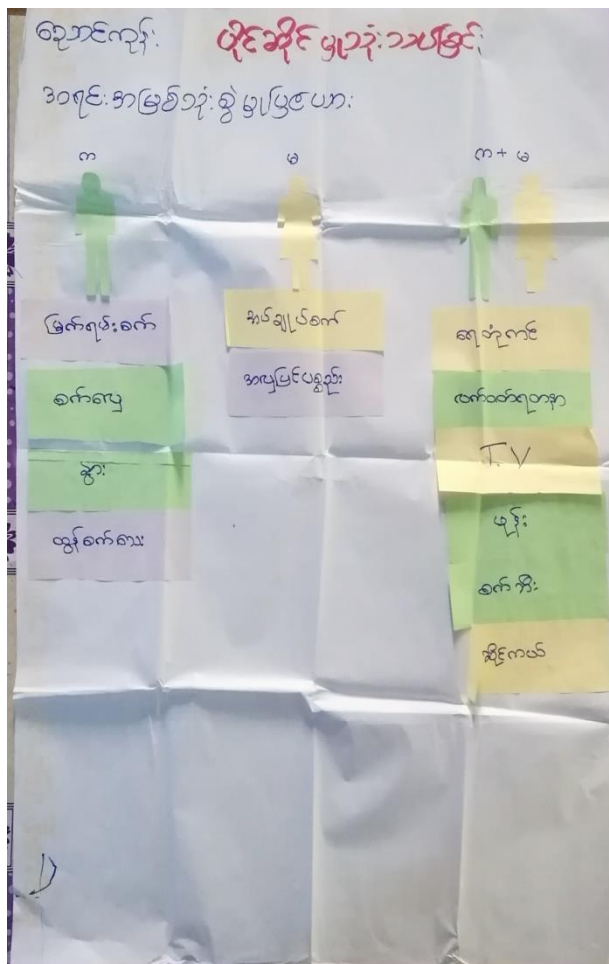 ညောင်ကုန်း ပိုင်ဆိုင်မှုသုံးသပ်ခြင်း
အရင်းအမြစ်သုံးစွဲမှုပြဇယား
က မ က + မ
မြက်ရမ်းစက်
စက်လှေ
နွား
ထွန်စက်သေး
အပ်ချုပ်စက်
အလှပြင်ပစ္စည်း
ရေဘုံကင်
လက်ဝတ်ရတနာ
T.V
ဖုန်း
စက်ဘီး
ဆိုင်ကယ်